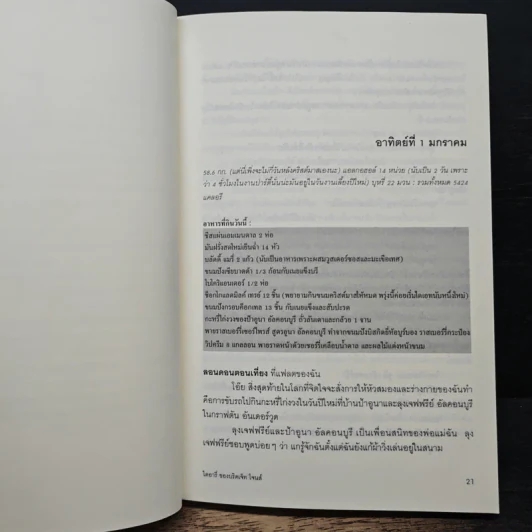 อาทิตย์ที่ 1 มกราคม
58.6 กก. (แต่นี่เพิ่งจะไม่กี่วันหลังคริสต์มาสเองนะ) แอลกอฮอล์ 14 หน่วย (นับเป็น 2 วัน เพราะ
ว่า 4 ชั่วโมงในงานปาร์ตี้นั่นน่ะมันอยู่ในวันงานเลี้ยงปีใหม่) บุหรี่ 22 มวน : รวมทั้งหมด 5424
แคลอรี
อาหารที่กินวันนี้ :
ชีสแผ่นเอมเมนตาล 2 ห่อ
มันฝรั่งสดใหม่เย็นฉ่ำ 14 หัว
บลัดดี้ แมรี่ 2 แก้ว (นับเป็นอาหารเพราะผสมวูสเตอร์ซอสและมะเขือเทศ)
ขนมปังเซียบาตต้า 1/3 ก้อนกับเนยแข็งบรี
ใบโคริแอนเดอร์ 1/2 ห่อ
ช็อกโกแลตมิลค์ เทรย์ 12 ชิ้น (พยายามกินขนมคริสต์มาสให้หมด พรุ่งนี้ค่อยเริ่มไดเอทนับหนึ่งใหม่)
ขนมปังกรอบค็อกเทล 13 ชิ้น กับเนยแข็งและสับปะรด
กะหรี่ไก่งวงของป้าอูนา อัลคอนบูรี ถั่วลันเตาและกล้วย 1 จาน
พายราสเบอร์รี่เซอร์ไพรส์ สูตรอูนา อัลคอนบูรี ทำจากขนมปังบิสกิตยี่ห้อบูร์บอง ราสเบอร์รี่กระป๋อง
วิปครีม 8 แกลลอน พายราดหน้าด้วยเชอร์รี่เคลือบน้ำตาล และผลไม้แต่งหน้าขนม
ลอนดอนตอนเที่ยง ที่แฟลตของฉัน
โอ๊ย สิ่งสุดท้ายในโลกที่จิตใจจะสั่งการให้หัวสมองและร่างกายของฉันทำ
คือการขับรถไปกินกะหรี่ไก่งวงในวันปีใหม่ที่บ้านป้าอูนาและลุงเจฟฟรีย์ อัลคอนบูรี
ในกราฟตัน อันเดอร์วูด
ลุงเจฟฟรีย์และป้าอูนา อัลคอนบูรี เป็นเพื่อนสนิทของพ่อแม่ฉัน ลุง
เจฟฟรีย์ชอบพูดบ่อยๆ ว่า แกรู้จักฉันตั้งแต่ฉันยังแก้ผ้าวิ่งเล่นอยู่ในสนาม
ไดอารี่ ของบริดเจ็ท โจนส์
21